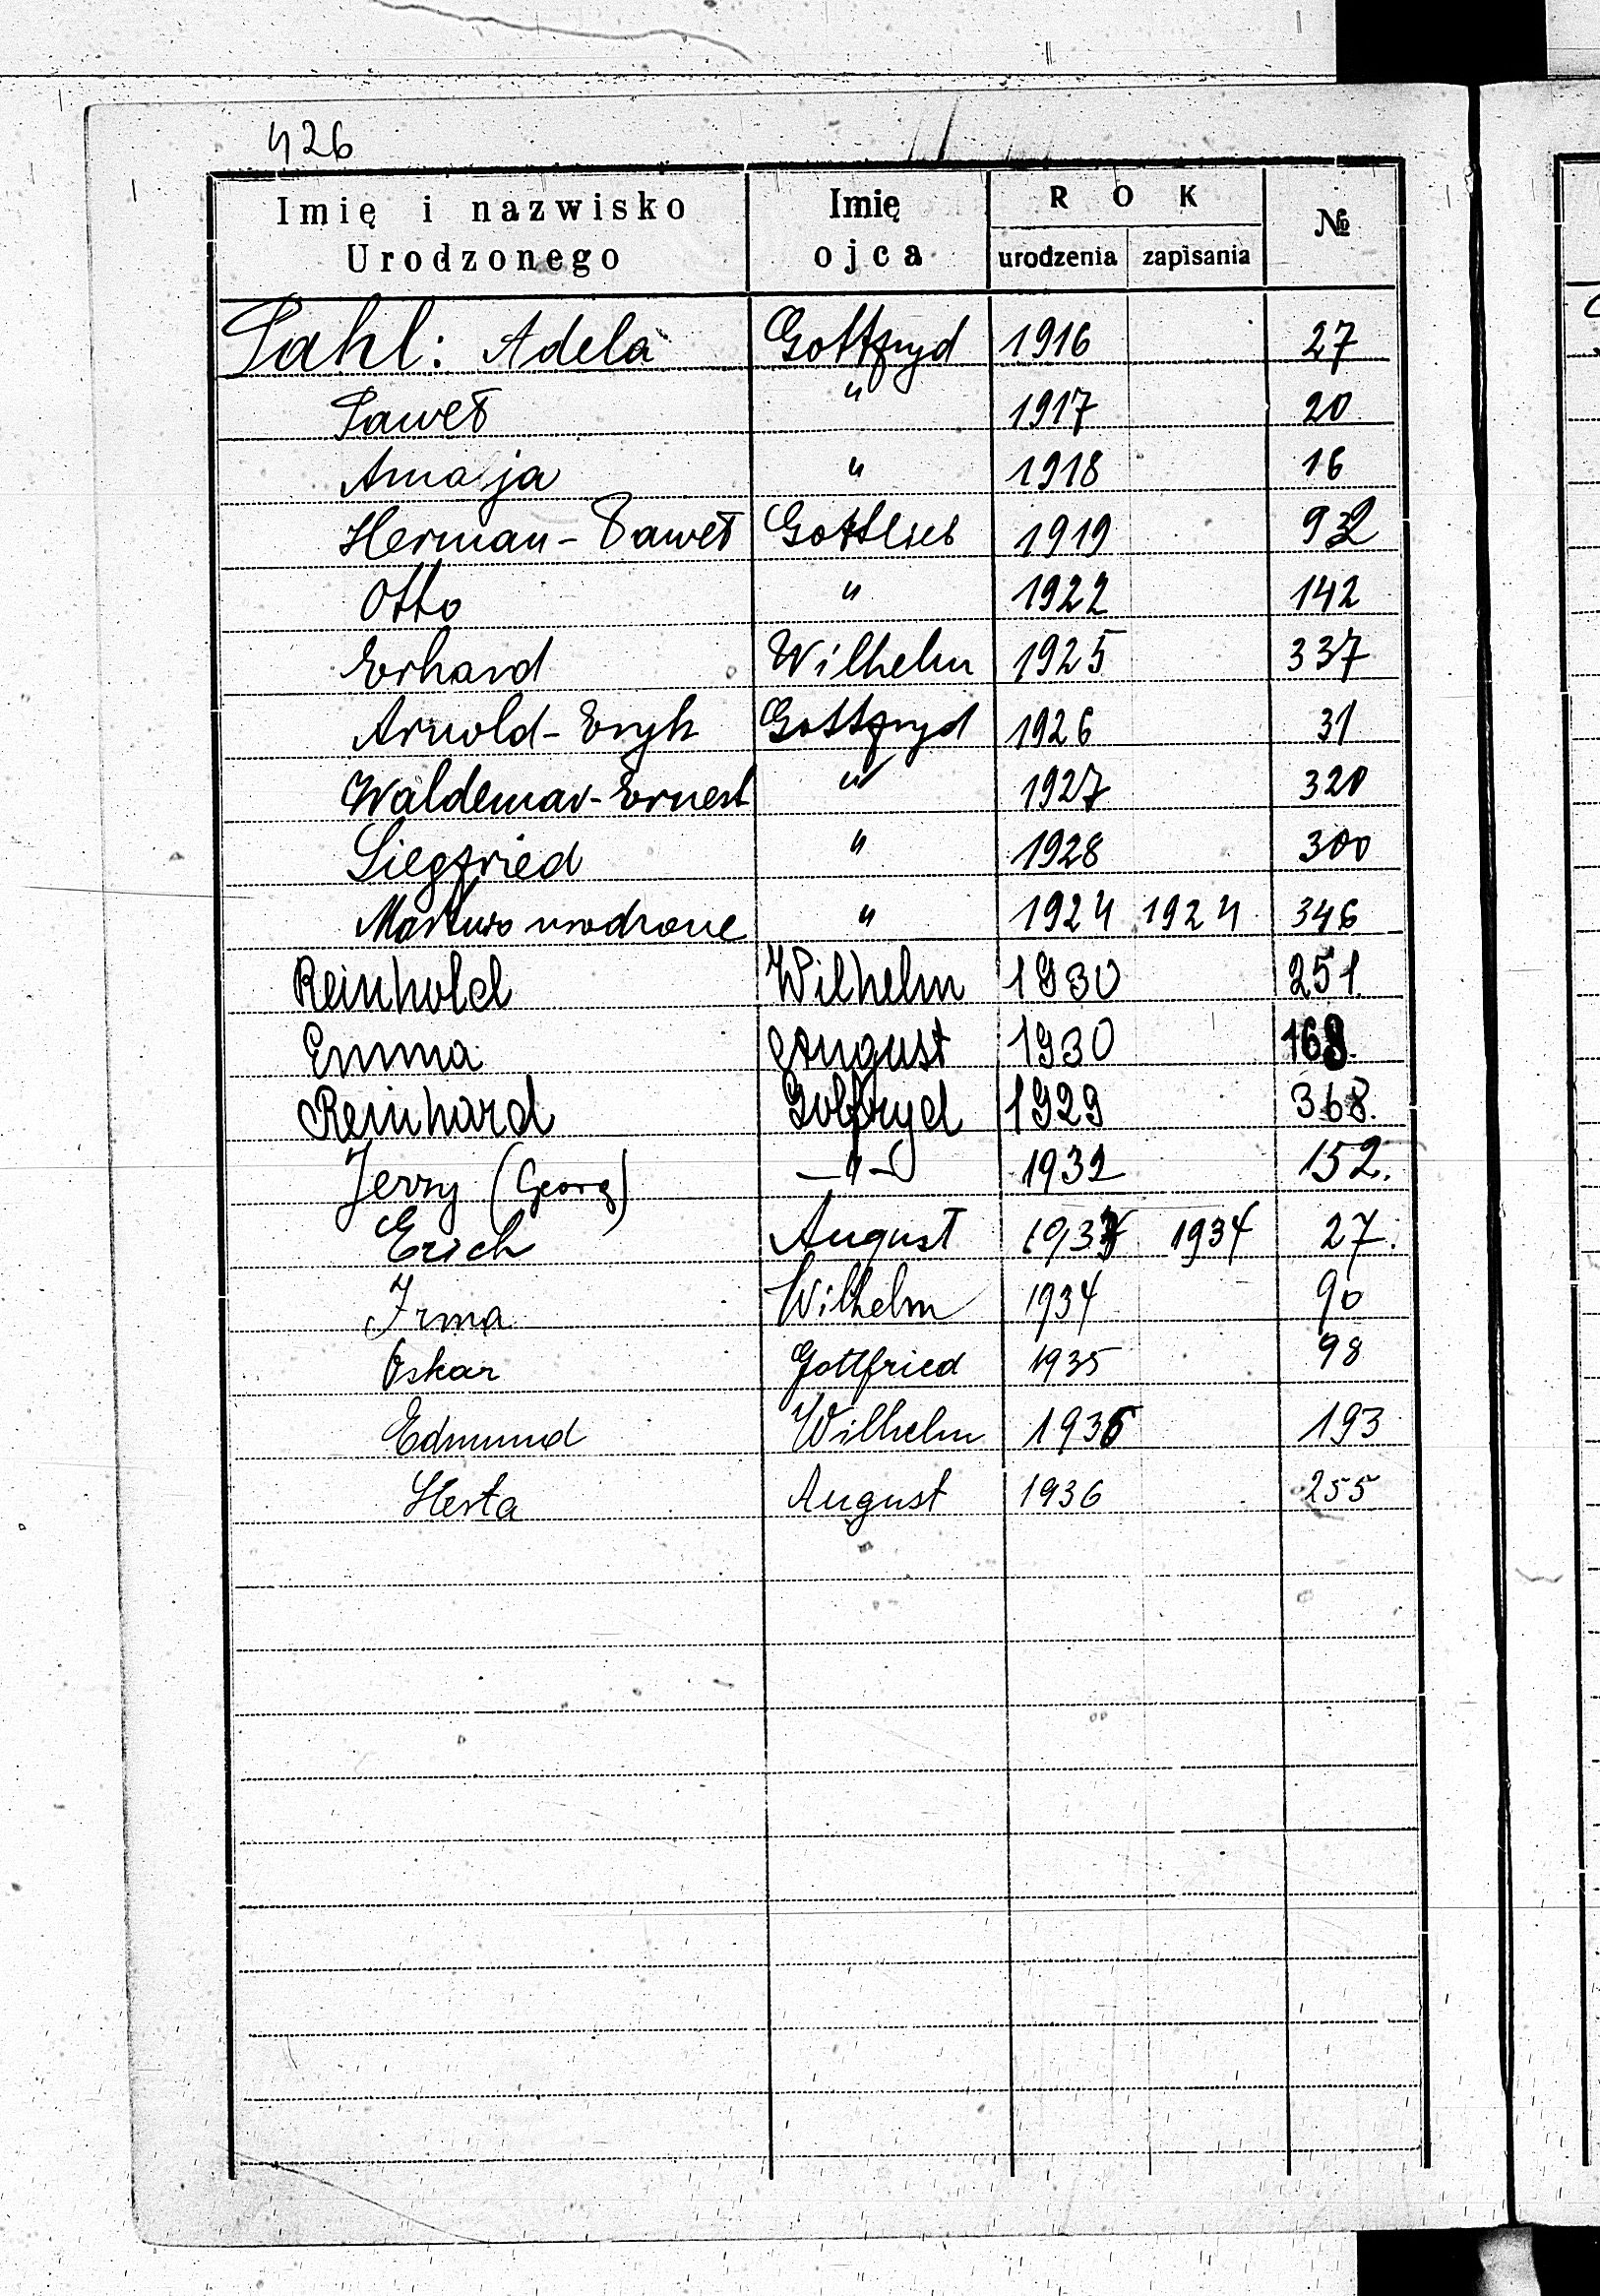 426
Imię i nazwisko Urodzonego | Imię ojca | ROK urodzenia | ROK zapisania | №
Pahl: Adela | Gottfryd | 1916 | | 27
Paweł | " | 1917 | | 20
Amalja | " | 1918 | | 16
Herman-Paweł | Gottlieb | 1919 | | 932
Otto | " | 1922 | | 142
Erhard | Wilhelm | 1925 | | 337
Arnold-Eryk | Gottfryd | 1926 | | 31
Waldemar-Ernest | " | 1927 | | 320
Siegfried | " | 1928 | | 300
Martwo urodzone | " | 1924 | 1924 | 346
Reinhold | Wilhelm | 1930 | | 251.
Emma | August | 1930 | | 168.
Reinhard | Gotfryd | 1929 | | 368.
Jerzy (Georg) | —"— | 1932 | | 152.
Erich | August | | 1934 | 27.
Irma | Wilhelm | 1934 | | 90
Oskar | Gottfried | 1935 | | 98
Edmund | Wilhelm | 1936 | | 193
Herta | August | 1936 | | 255